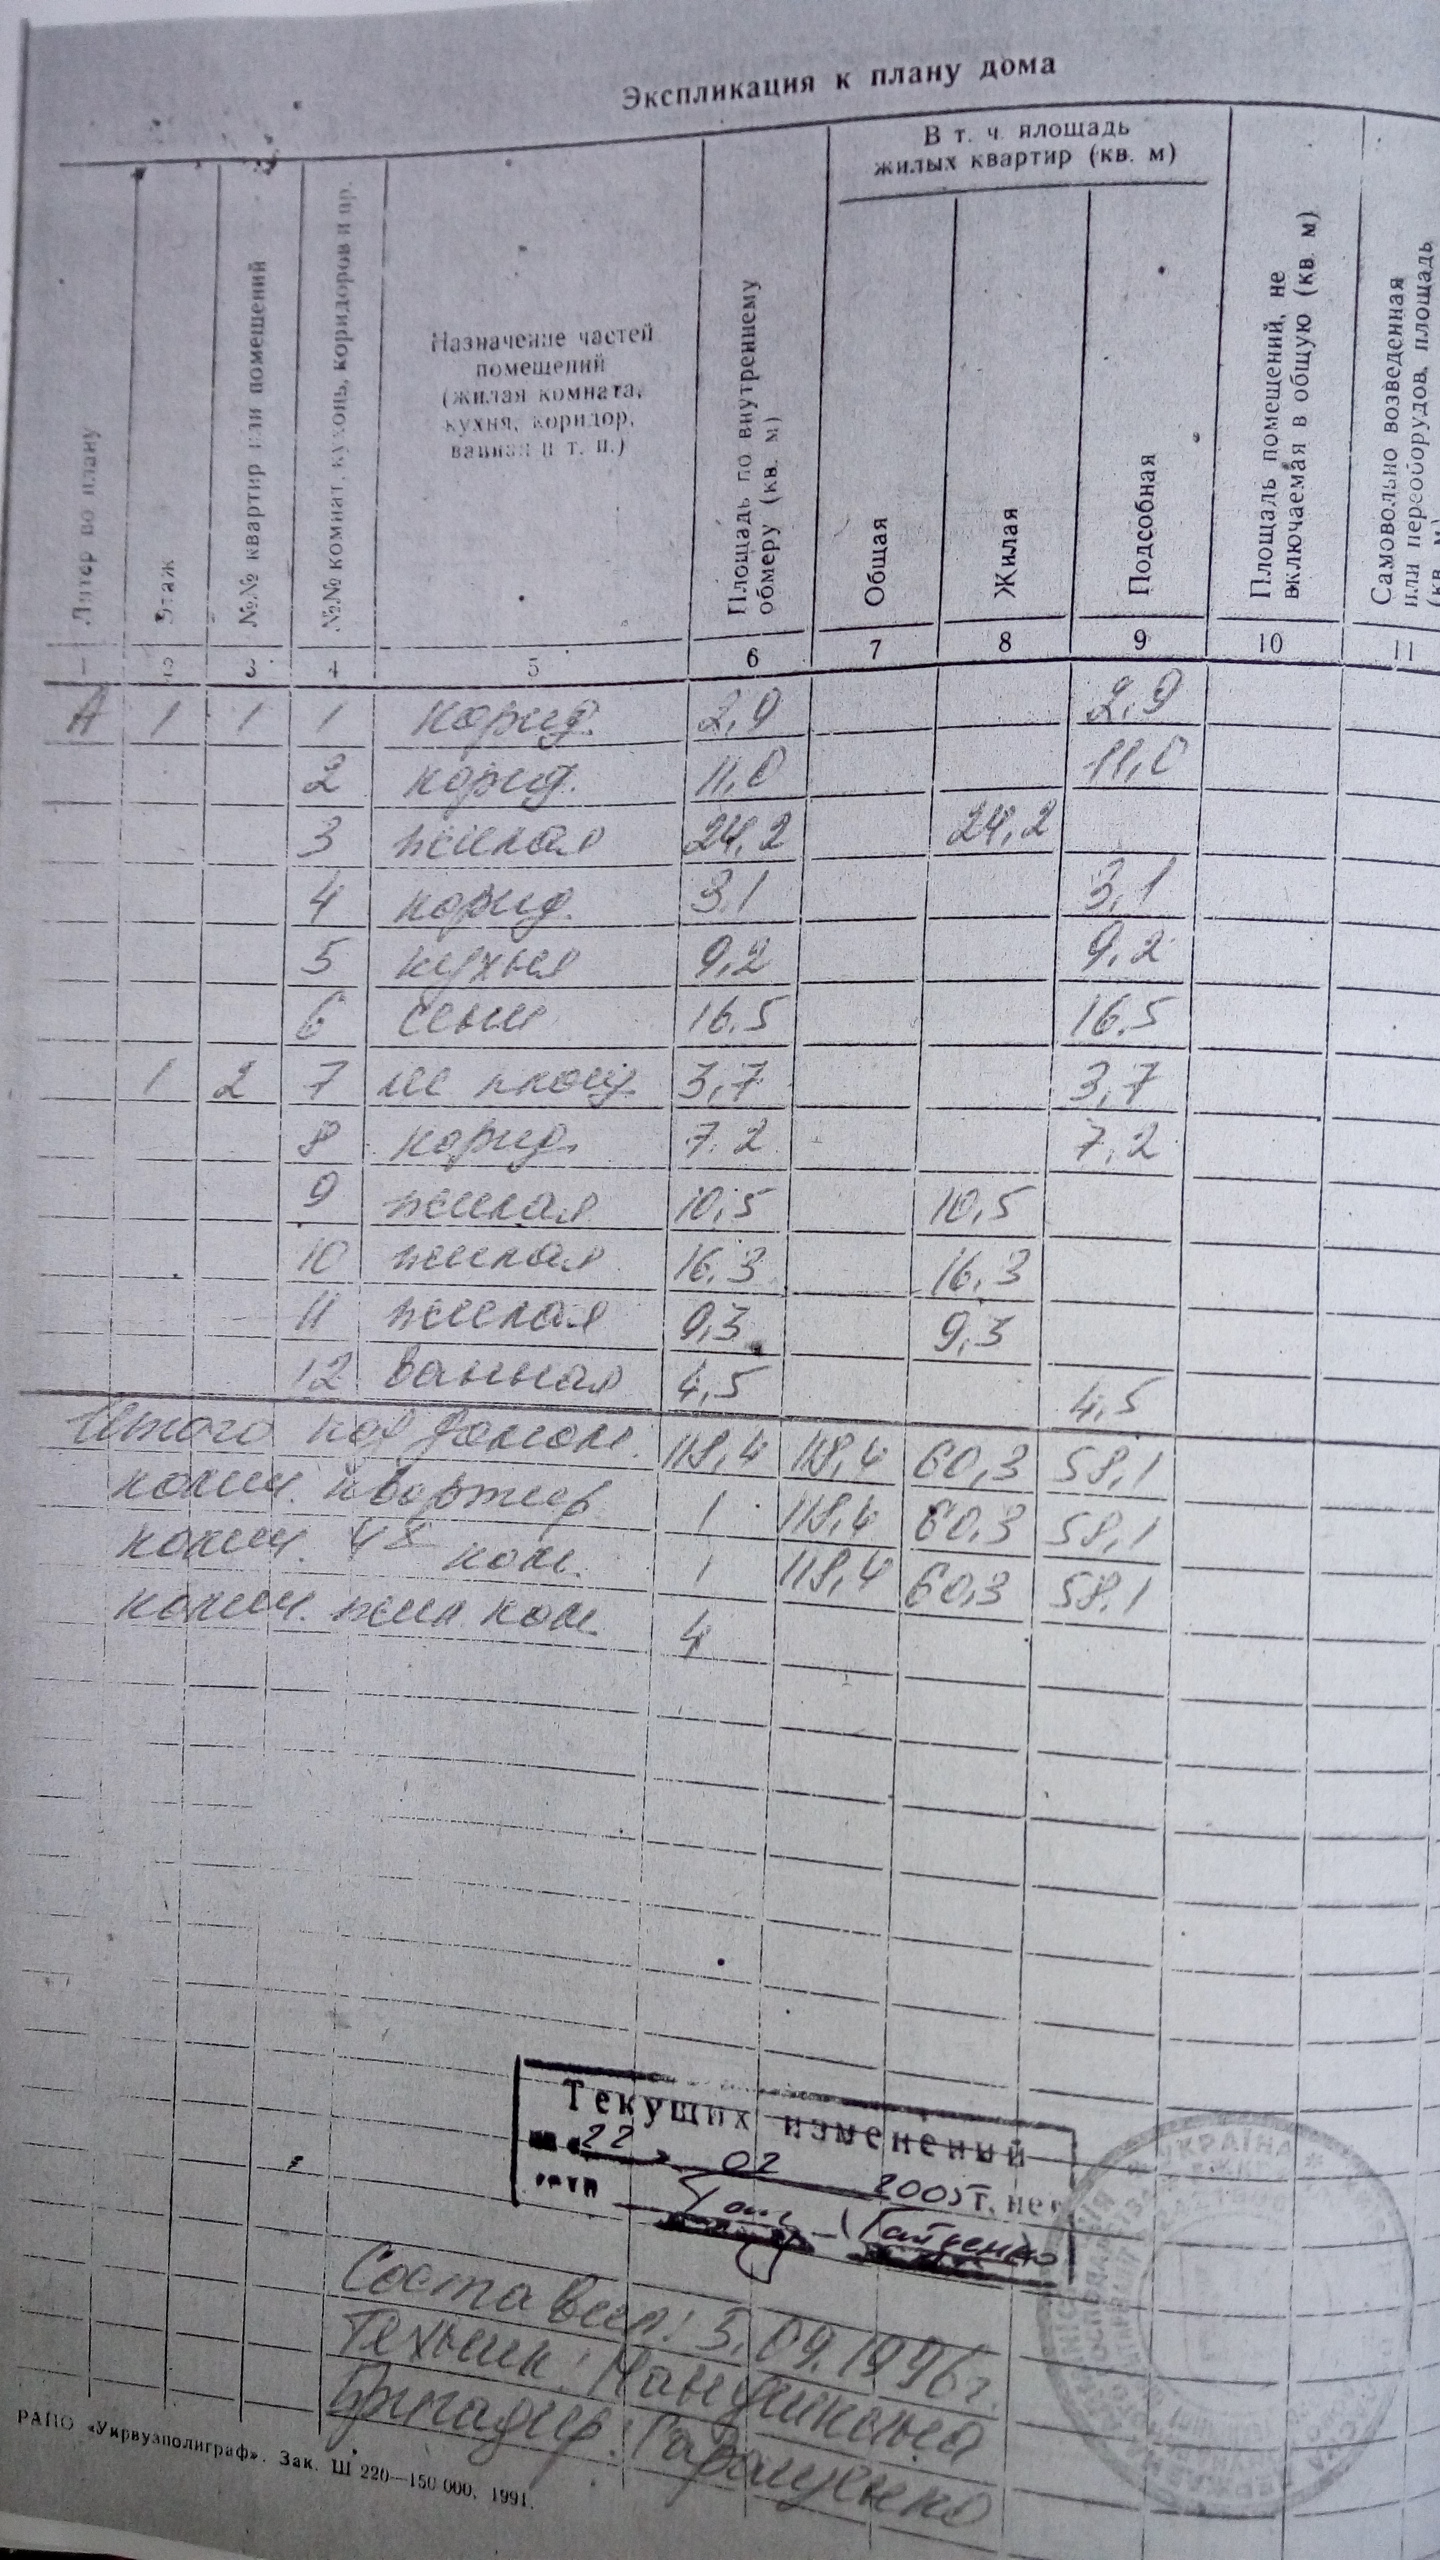 Экспликация к плану дома
Литер по плану
Этаж
№№ квартир или помещений
№№ комнат, кухонь, коридоров и пр.
Назначение частей
помещений
(жилая комната,
кухня, коридор,
ванная и т. п.)
Площадь по внутреннему
обмеру (кв. м)
В т. ч. площадь
жилых квартир (кв. м)
Общая
Жилая
Подсобная
Площадь помещений, не
включаемая в общую (кв. м)
Самовольно возведенная
или переоборудов. площадь
1 2 3 4 5 6 7 8 9 10 11
А 1 1 1 корид. 2,9 2,9
2 корид. 11,0 11,0
3 жилая 24,2 24,2
4 корид. 3,1 3,1
5 кухня 9,2 9,2
6 сени 16.5 16.5
1 2 7 3,7 3,7
8 корид. 7.2 7,2
9 жилая 10,5 10,5
10 жилая 16,3 16,3
11 жилая 9,3 9,3
12 ванная 4,5 4,5
Итого под домом 118,4 118,4 60,3 58,1
колич. квартир 1 118,4 60,3 58,1
колич. 4х ком. 1 118,4 60,3 58,1
колич. жил. ком. 4
Текущих изменений
22 02 2005 г. нет
Составлен: 3.09.1996г.
Техник:
Бригадир: Гаращенко
РАПО «Укрвузполиграф». Зак. Ш 220—150 000, 1991.
УКРАЇНА